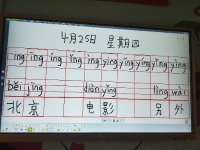 4月25日 星期四
ing īng íng ǐng ìng ying yīng yíng yǐng yìng
běi jīng diàn yǐng lìng wài
北京 电影 另外